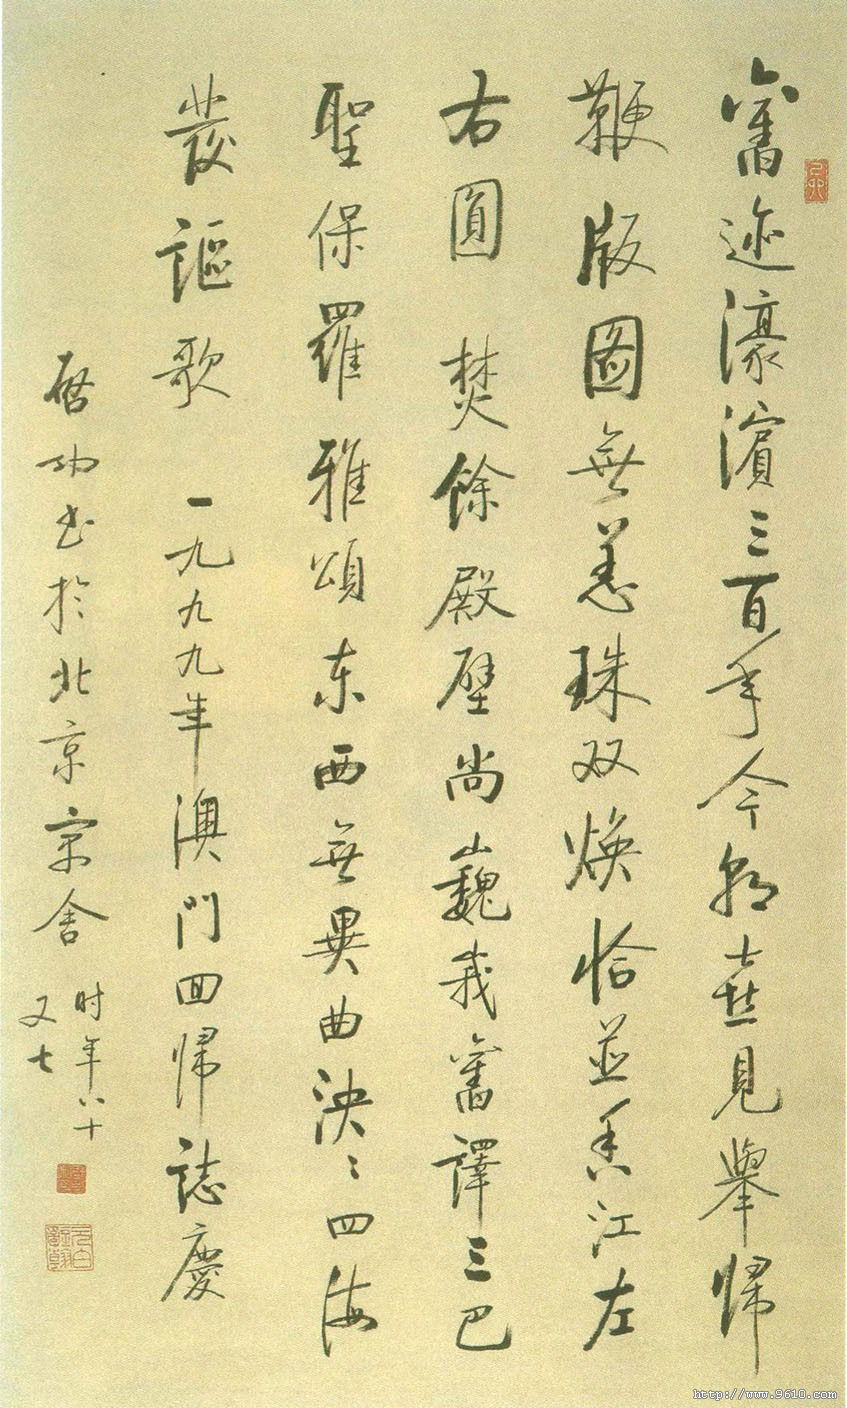 舊迹濠濱三百年今朝喜見舉歸
鞭版圖無恙珠双煥恰並香江左
右圓 焚餘殿壁尚巍峩舊譯三巴
聖保羅雅頌东西無異曲泱〻四海
發謳歌 一九九九年澳門回歸誌慶
啓功书於北京寓舍 时年八十
又七
http://www.9610.com